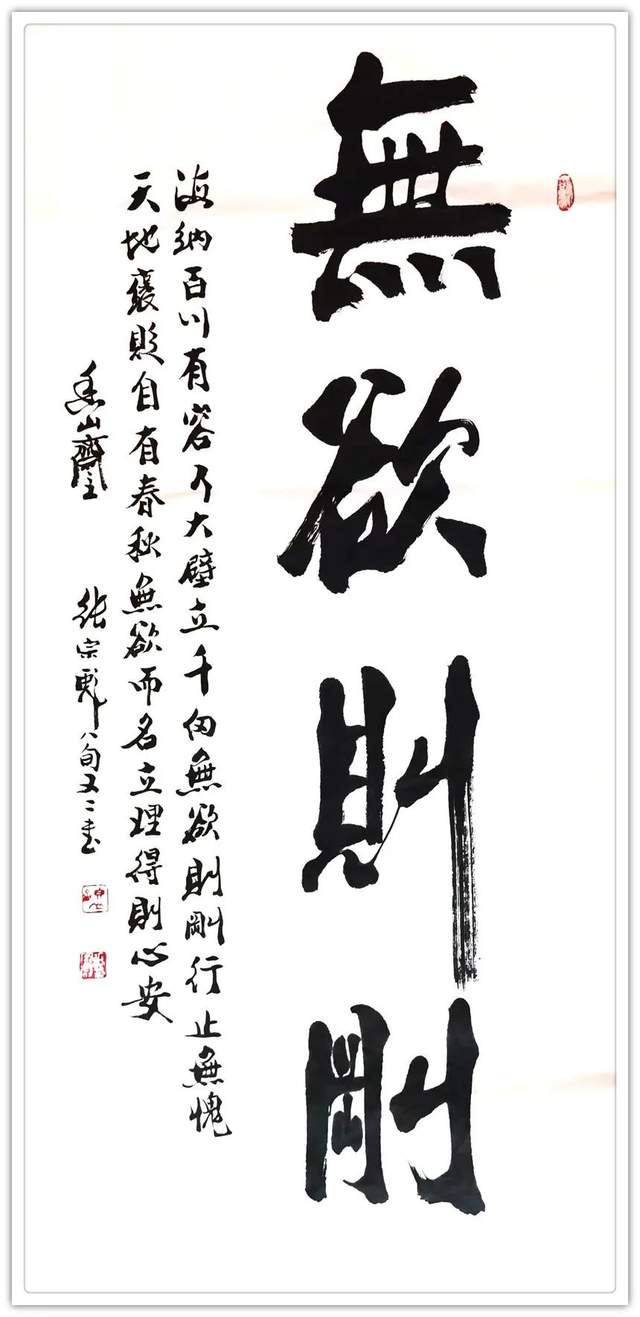 無欲則剛
海納百川有容乃大壁立千仞無欲則剛行止無愧
天地褒貶自有春秋無欲而名立理得則心安
香山齋主
张宗彪八旬又二書